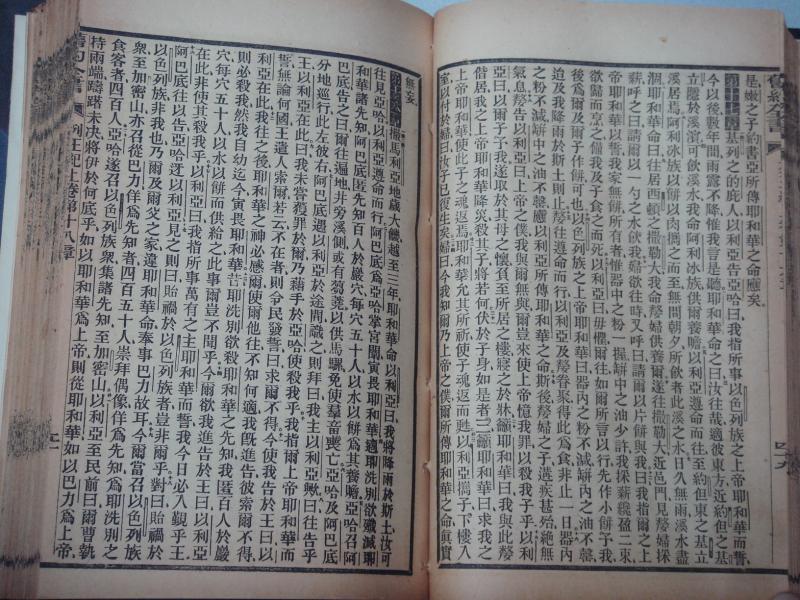 是嫩之子約書亞所傳耶和華之命應矣
第十七章基列之庶人以利亞告亞哈曰我指所事以色列族之上帝耶和華而誓
今以後數年間雨露不降惟我言是聽耶和華命之曰汝往哉適彼東方近約但之基
立隱於溪濱可飲溪水我命阿利冰族供爾養贍以利亞遵命而往至約但東之基立
溪居焉阿利冰族以餅以肉饋之而至無間朝夕所飲者此溪之水日久無雨溪水盡
涸耶和華命曰往居西頓之撒勒大我命嫠婦供養爾遂往撒勒大近邑門見嫠婦採
薪呼之曰請爾以一勺之水飲我婦欲往時又呼曰請爾以片餅與我曰我指爾之上
帝耶和華以誓我家無餅所有者惟器中之粉一握缾中之油少許我採薪纔盈二束
欲歸而烹之備我及子食之而死以利亞曰毋懼爾往如爾所言以行先作小餅予我
後爲爾及爾子作餅可也以色列族之上帝耶和華曰器內之粉不減缾中之油不罄
待耶和華降雨於斯土則止嫠往遵命而行以利亞及嫠眷聚得此爲食非止一日器內
之粉不減缾中之油不罄應以利亞所傳耶和華之命斯後嫠婦之子遘疾甚殆絶無
氣息嫠告以利亞曰上帝之僕我與爾無與爾豈來使上帝憶我罪以殺我子乎以利
亞曰以爾子予我遂取於其母之懷負至所居之樓寢之於牀籲耶和華曰我與此嫠
偕居我之上帝耶和華降災殺其子將若何伏於子身如是者三籲耶和華曰求我之
上帝耶和華使此子之魂返焉耶和華允其所祈使子魂返而甦以利亞攜子下樓入
室付於婦曰汝子已復生矣婦曰今我知爾乃上帝之僕爾所傳耶和華之命眞實
無妄
第十八章撒馬利亞地歲大饑越至三年耶和華命以利亞曰我將降雨於斯土汝可
往見亞哈以利亞遵命而行阿巴底爲亞哈掌宮闈寅畏耶和華適耶洗別欲殲滅耶
和華諸先知阿巴底匿先知百人於巖穴每穴五十人以水以餅爲其養贍亞哈召阿
巴底告之曰爾往遍地非旁溪側或有芻蕘以供馬騾免使羣畜喪亡亞哈及阿巴底
分地巡行此左彼右阿巴底遇以利亞於途間識之則拜曰我主以利亞歟曰往告乎
王以利亞在此曰我未嘗獲罪於爾乃藉手於亞哈使殺我乎我指爾上帝耶和華而
誓無論何國王遣人索爾若云不在者則令民發誓曰求爾不得今使我告於王曰以
利亞在此我往之後耶和華之神必感爾使爾他往不知何適我旣進告彼索爾不得
則必殺我然我自幼迄今寅畏耶和華昔耶洗別欲殺耶和華之先知我匿百人於巖
穴每穴五十人以水以餅而供給之此事爾豈不聞乎今爾欲我進告於王曰以利亞
在此非使其殺我乎以利亞曰我指所事萬有之主耶和華而誓我今日必入覲乎王
阿巴底往以告亞哈王迓以利亞見之則曰貽禍於以色列族者豈非爾乎對曰貽禍於
以色列族非我也乃爾及爾父之家違耶和華命奉事巴力故耳今爾當召以色列族
衆至加密山亦召從巴力佯爲先知者四百五十人崇拜偶像佯爲先知爲耶洗別之
食客者四百人亞哈遂召以色列族衆集諸先知至加密山以利亞至民前曰爾曹執
持兩端躊躇未決將伊於何底乎如以耶和華爲上帝則從耶和華如以巴力爲上帝
舊約全書 列王紀上卷第十八章